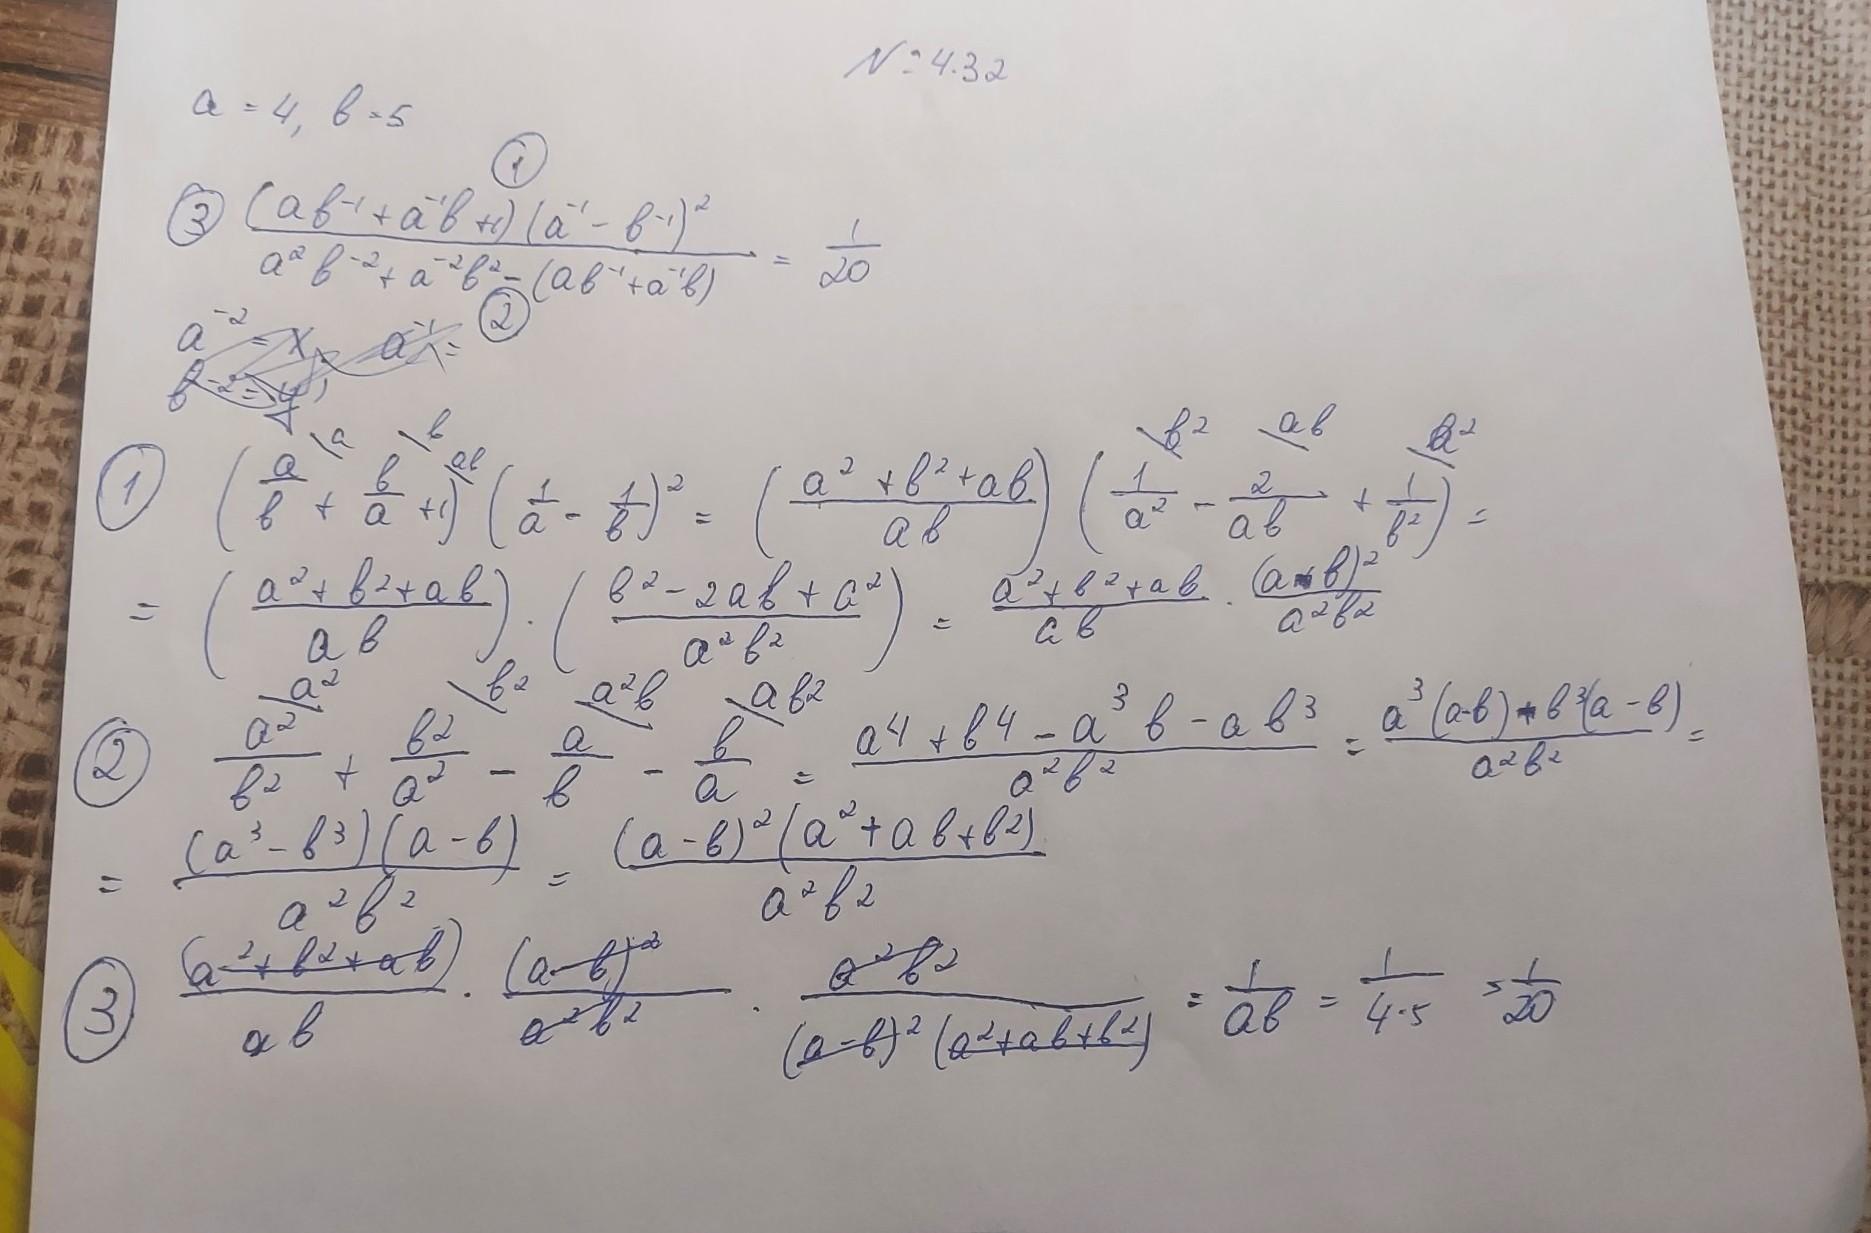 N=4.32
a=4, b=5
①
③ (ab⁻¹+a⁻¹b+1)(a⁻¹-b⁻¹)² / a²b⁻²+a⁻²b²-(ab⁻¹+a⁻¹b) = 1/20
②
a⁻² = x, a⁻¹ =
b⁻² = y
\a \b \ab \b² \ab \a²
① (a/b + b/a +1)(1/a - 1/b)² = (a²+b²+ab / ab)(1/a² - 2/ab + 1/b²) =
= (a²+b²+ab / ab) · (b²-2ab+a² / a²b²) = a²+b²+ab / ab · (a-b)² / a²b²
\a² \b² \a²b \ab²
② a²/b² + b²/a² - a/b - b/a = a⁴+b⁴-a³b-ab³ / a²b² = a³(a-b)-b³(a-b) / a²b² =
= (a³-b³)(a-b) / a²b² = (a-b)²(a²+ab+b²) / a²b²
③ (a²+b²+ab) / ab · (a-b)² / a²b² · a²b² / (a-b)²(a²+ab+b²) = 1/ab = 1/4·5 = 1/20